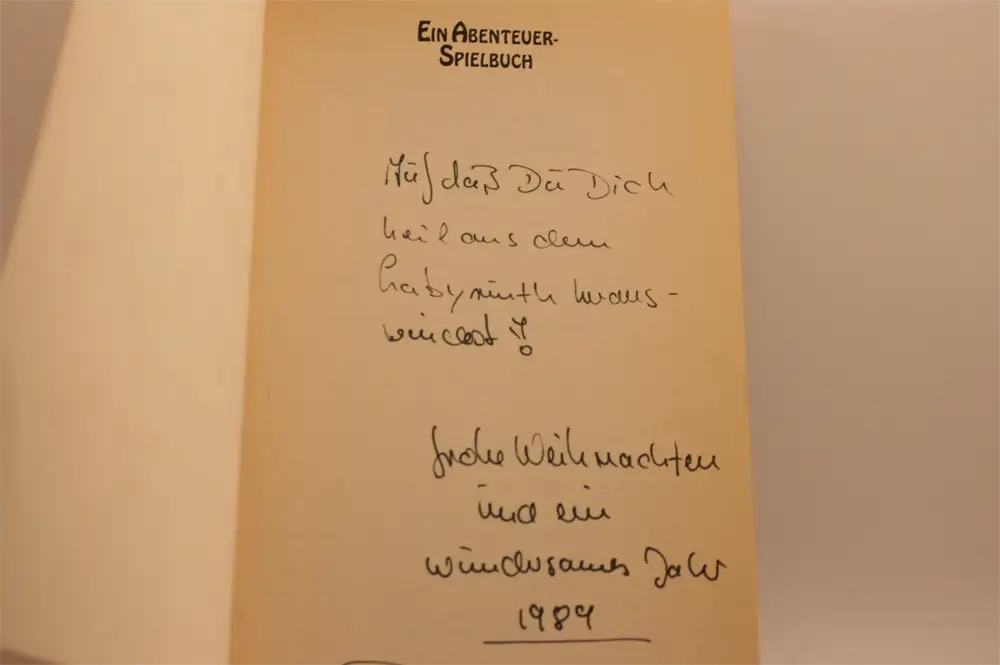 EIN ABENTEUER-
SPIELBUCH
Auf daß Du Dich
heil aus dem
Labyrinth heraus-
windest!
frohe Weihnachten
und ein
wundersames Jahr
1989